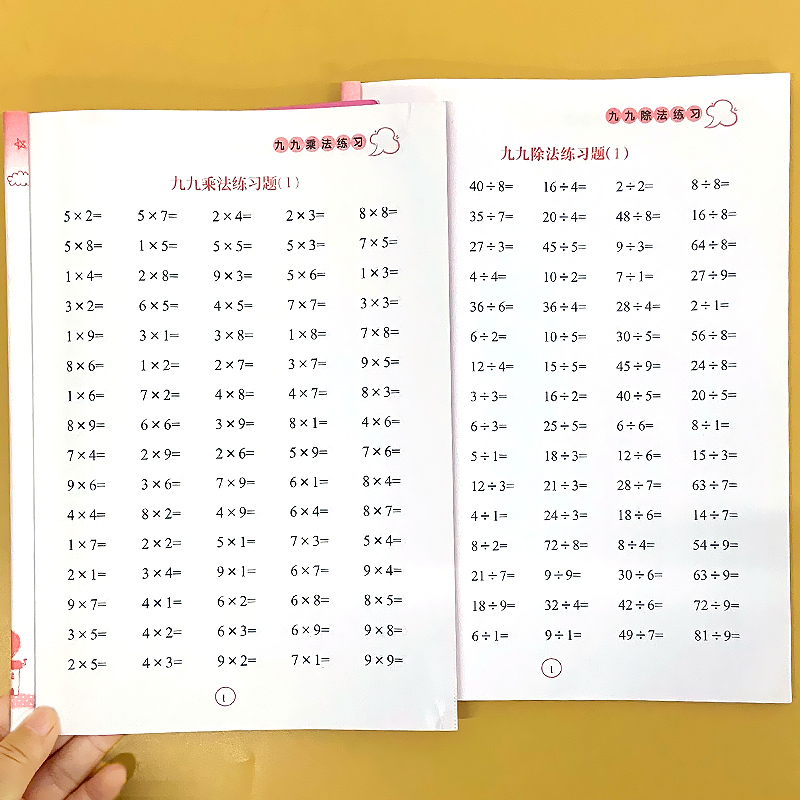 九九乘法练习
九九乘法练习题(1)
5×2= 5×7= 2×4= 2×3= 8×8=
5×8= 1×5= 5×5= 5×3= 7×5=
1×4= 2×8= 9×3= 5×6= 1×3=
3×2= 6×5= 4×5= 7×7= 3×3=
1×9= 3×1= 3×8= 1×8= 7×8=
8×6= 1×2= 2×7= 3×7= 9×5=
1×6= 7×2= 4×8= 4×7= 8×3=
8×9= 6×6= 3×9= 8×1= 4×6=
7×4= 2×9= 2×6= 5×9= 7×6=
9×6= 3×6= 7×9= 6×1= 8×4=
4×4= 8×2= 4×9= 6×4= 8×7=
1×7= 2×2= 5×1= 7×3= 5×4=
2×1= 3×4= 9×1= 6×7= 9×4=
9×7= 4×1= 6×2= 6×8= 8×5=
3×5= 4×2= 6×3= 6×9= 9×8=
2×5= 4×3= 9×2= 7×1= 9×9=
1
九九除法练习
九九除法练习题(1)
40÷8= 16÷4= 2÷2= 8÷8=
35÷7= 20÷4= 48÷8= 16÷8=
27÷3= 45÷5= 9÷3= 64÷8=
4÷4= 10÷2= 7÷1= 27÷9=
36÷6= 36÷4= 28÷4= 2÷1=
6÷2= 10÷5= 30÷5= 56÷8=
12÷4= 15÷5= 45÷9= 24÷8=
3÷3= 16÷2= 40÷5= 20÷5=
6÷3= 25÷5= 6÷6= 8÷1=
5÷1= 18÷3= 12÷6= 15÷3=
12÷3= 21÷3= 28÷7= 63÷7=
4÷1= 24÷3= 18÷6= 14÷7=
8÷2= 72÷8= 8÷4= 54÷9=
21÷7= 9÷9= 30÷6= 63÷9=
18÷9= 32÷4= 42÷6= 72÷9=
6÷1= 9÷1= 49÷7= 81÷9=
1